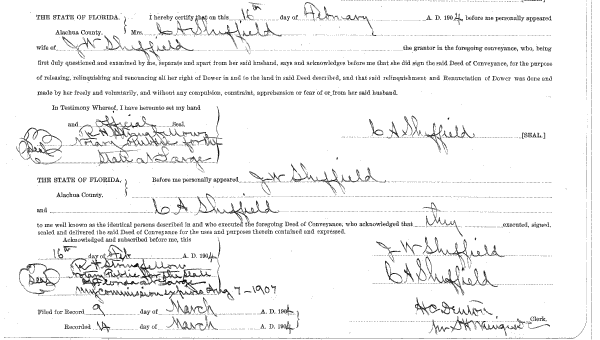 THE STATE OF FLORIDA. } I hereby certify that on this 16th day of February A. D. 1904, before me personally appeared
Alachua County. Mrs. C A Sheffield
wife of J W Sheffield the grantor in the foregoing conveyance, who, being
first duly questioned and examined by me, separate and apart from her said husband, says and acknowledges before me that she did sign the said Deed of Conveyance, for the purpose
of releasing, relinquishing and renouncing all her right of Dower in and to the land in said Deed described, and that said relinquishment and Renunciation of Dower was done and
made by her freely and voluntarily, and without any compulsion, constraint, apprehension or fear of or from her said husband.
In Testimony Whereof, I have hereunto set my hand
and official Seal.
R H Stringfellow
Seal Notary Public for the
State at Large
C A Sheffield [SEAL]
THE STATE OF FLORIDA. } Before me personally appeared J W Sheffield
Alachua County.
and C A Sheffield
to me well known as the identical persons described in and who executed the foregoing Deed of Conveyance, who acknowledged that they executed, signed,
sealed and delivered the said Deed of Conveyance for the uses and purposes therein contained and expressed.
Acknowledged and subscribed before me, this
16th day of Feb A. D. 1904.
R H Stringfellow
Seal Notary Public for the State
of Florida at Large
my commission expires Aug 7-1907
J W Sheffield
C A Sheffield
Filed for Record 9 day of March A. D. 1904
Recorded 14 day of March A. D. 1904
H C Denton
Clerk.